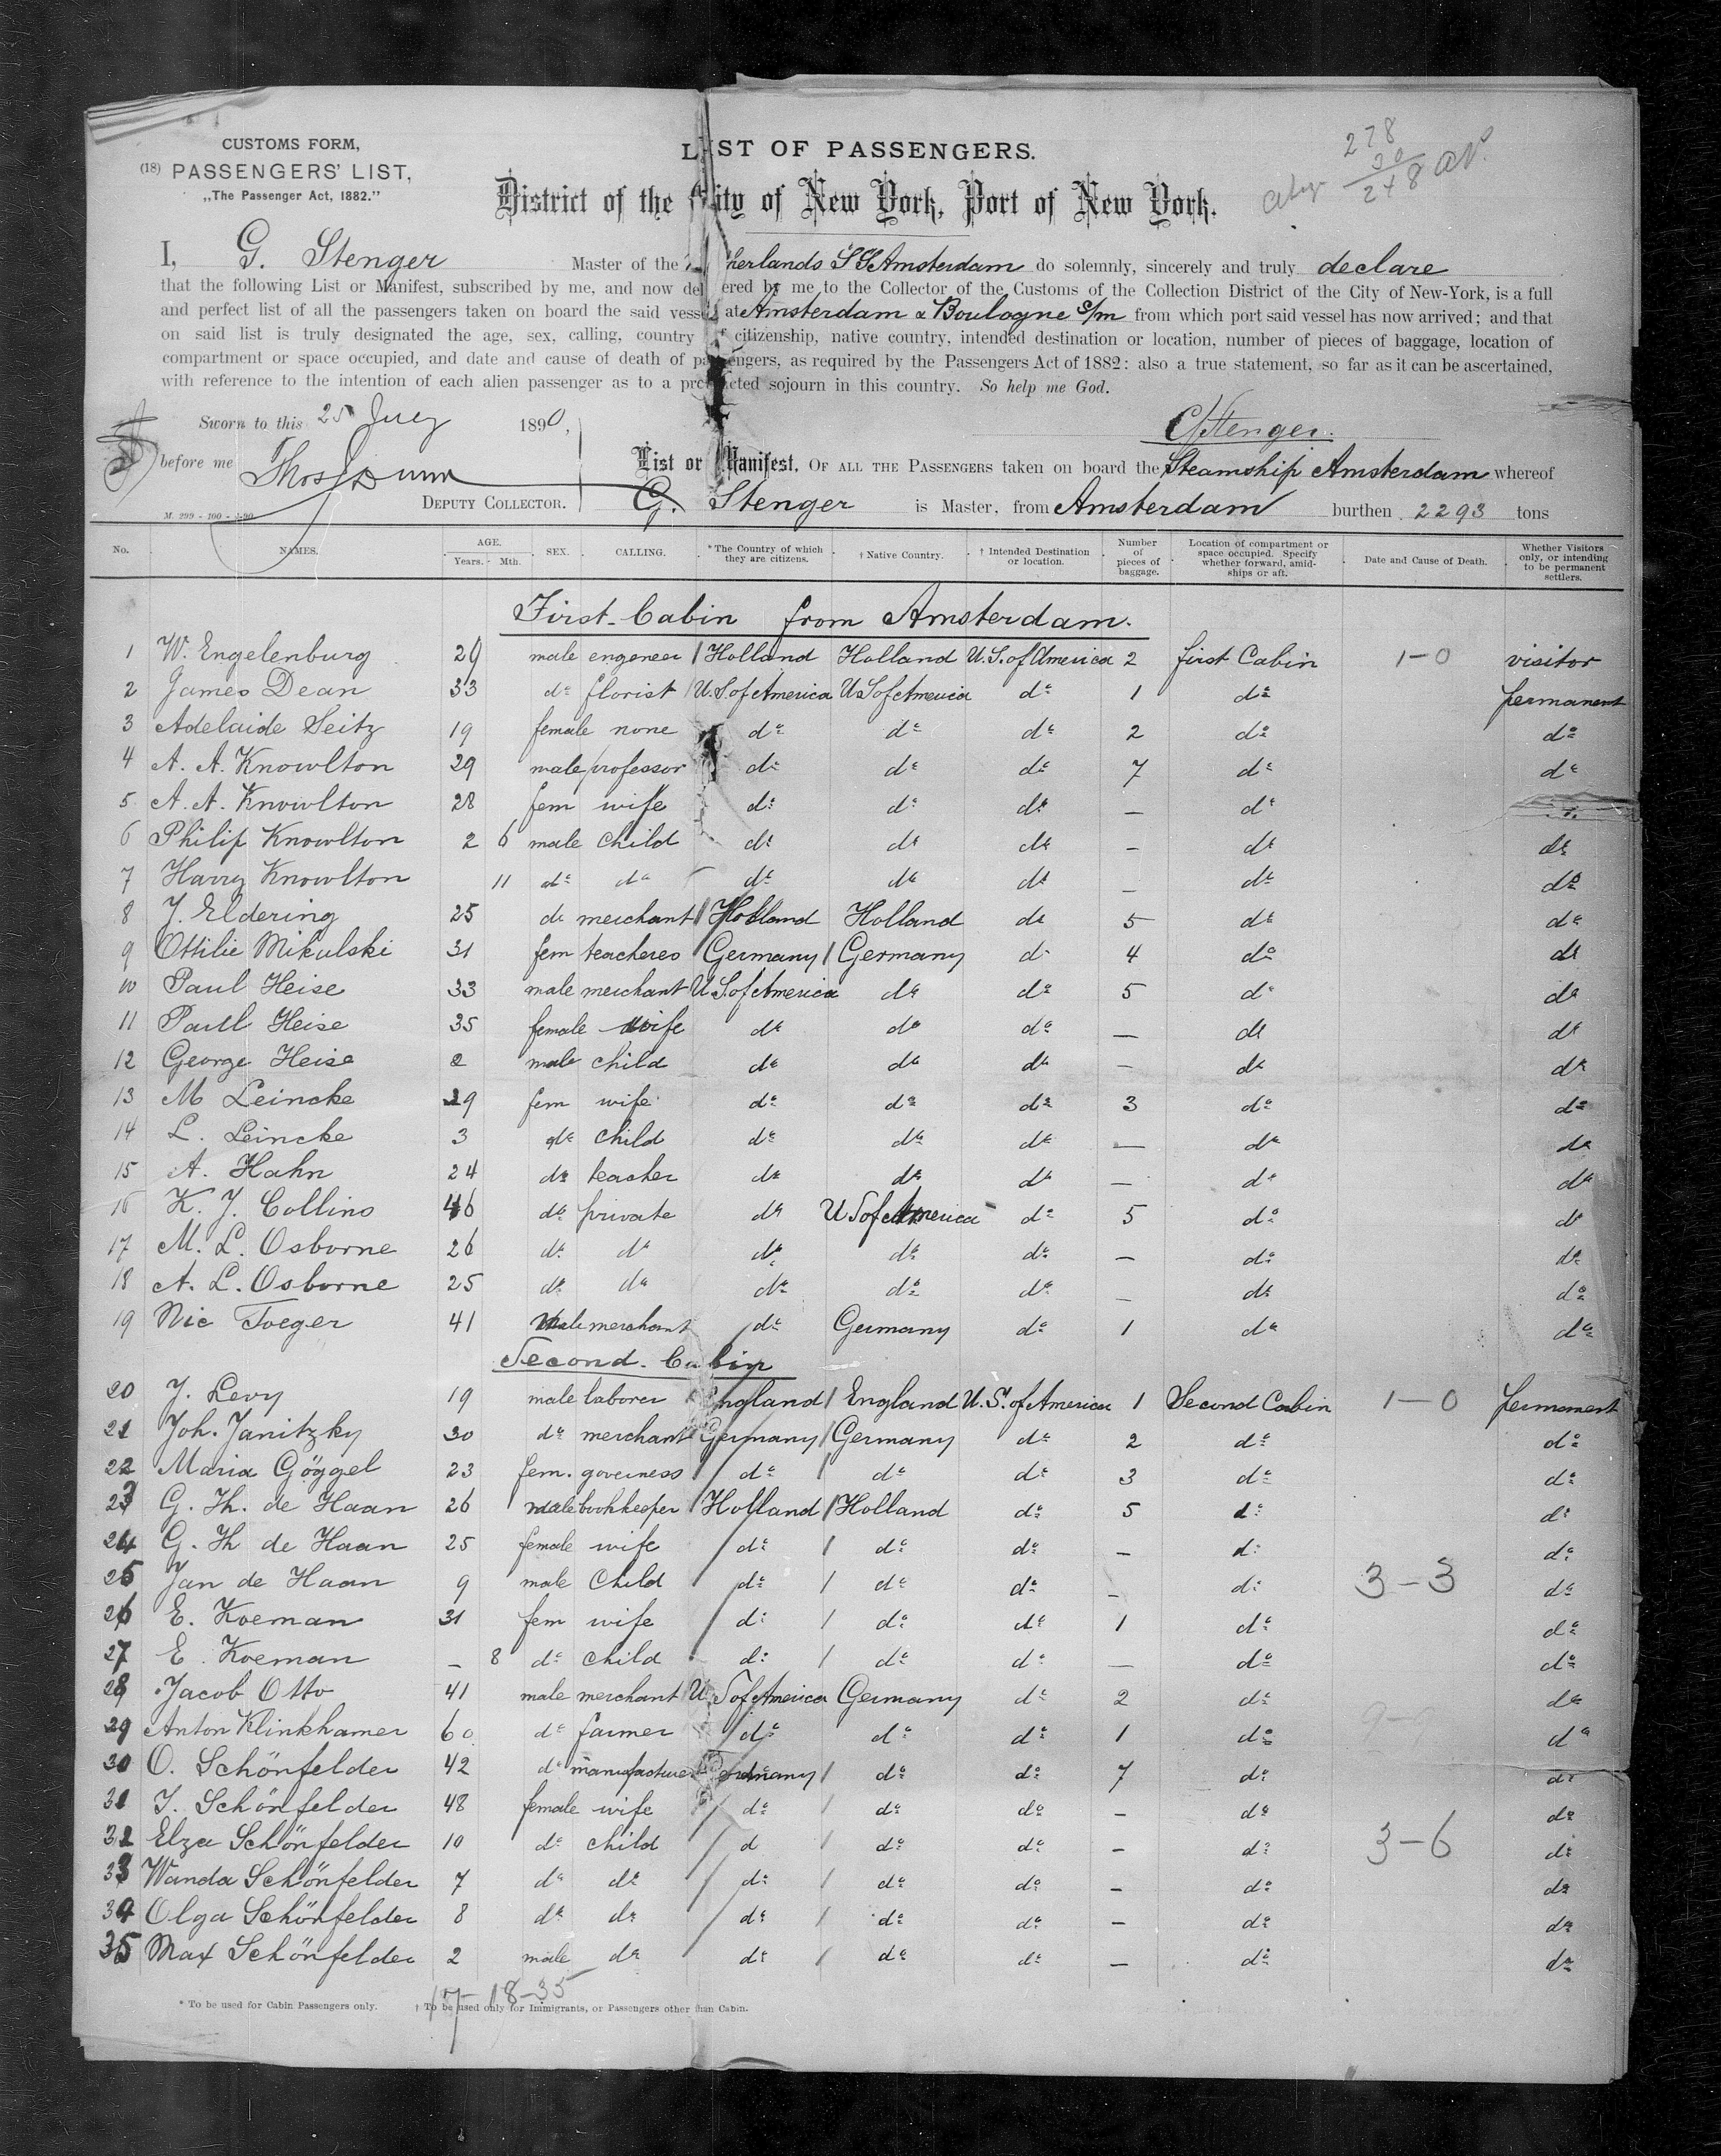 CUSTOMS FORM,
(18) PASSENGERS' LIST,
„The Passenger Act, 1882."
LIST OF PASSENGERS.
278
30
248
District of the City of New York, Port of New York.
I, G. Stenger Master of the herlands SS Amsterdam do solemnly, sincerely and truly declare
that the following List or Manifest, subscribed by me, and now delivered by me to the Collector of the Customs of the Collection District of the City of New-York, is a full
and perfect list of all the passengers taken on board the said vessel at Amsterdam & Boulogne s/m from which port said vessel has now arrived; and that
on said list is truly designated the age, sex, calling, country of citizenship, native country, intended destination or location, number of pieces of baggage, location of
compartment or space occupied, and date and cause of death of passengers, as required by the Passengers Act of 1882: also a true statement, so far as it can be ascertained,
with reference to the intention of each alien passenger as to a protracted sojourn in this country. So help me God.
Sworn to this 25 July 1890,
G Stenger.
before me Thos Dunn
DEPUTY COLLECTOR.
M. 299 - 100 - 4-90
List or Manifest, OF ALL THE PASSENGERS taken on board the Steamship Amsterdam whereof
G. Stenger is Master, from Amsterdam burthen 2293 tons
No. NAMES. AGE. Years. Mth. SEX. CALLING. * The Country of which they are citizens. † Native Country. † Intended Destination or location. Number of pieces of baggage. Location of compartment or space occupied. Specify whether forward, amidships or aft. Date and Cause of Death. Whether Visitors only, or intending to be permanent settlers.
First-Cabin from Amsterdam.
1 W. Engelenburg 29 male engeneer Holland Holland U.S. of America 2 first Cabin 1-0 visitor
2 James Dean 33 do florist U.S. of America U.S. of America do 1 do permanent
3 Adelaide Seitz 19 female none do do do 2 do do
4 A. A. Knowlton 29 male professor do do do 7 do do
5 A. A. Knowlton 28 fem wife do do do — do
6 Philip Knowlton 2 6 male child do do do — do do
7 Harry Knowlton 11 do do do do do — do do
8 J. Eldering 25 do merchant Holland Holland do 5 do do
9 Ottilie Mikulski 31 fem teacheres Germany Germany do 4 do do
10 Paul Heise 33 male merchant U.S. of America do do 5 do do
11 Paul Heise 35 female wife do do do — do do
12 George Heise 2 male child do do do — do do
13 M Leincke 29 fem wife do do do 3 do do
14 L. Leincke 3 do child do do do — do do
15 A. Hahn 24 do teacher do do do — do do
16 K. J. Collins 46 do private do U S of America do 5 do do
17 M. L. Osborne 26 do do do do do — do do
18 A. L. Osborne 25 do do do do do — do do
19 Nic Toeger 41 male merchant do Germany do 1 do do
Second-Cabin
20 J. Levy 19 male laborer England England U.S. of America 1 Second Cabin 1-0 permanent
21 Joh. Janitzky 30 do merchant Germany Germany do 2 do do
22 Maria Göggel 23 fem. governess do do do 3 do do
23 G. Th. de Haan 26 male bookkeeper Holland Holland do 5 do do
24 G. Th de Haan 25 female wife do do do — do do
25 Jan de Haan 9 male Child do do do — do 3-3 do
26 E. Koeman 31 fem wife do do do 1 do do
27 E. Koeman — 8 do child do do do — do do
28 Jacob Otto 41 male merchant U. S of America Germany do 2 do do
29 Anton Klinkhamer 60 do farmer do do do 1 do do
30 O. Schönfelder 42 do manufacturer Germany do do 7 do do
31 J. Schönfelder 48 female wife do do do — do do
32 Elza Schönfelder 10 do child d do do — do 3-6 do
33 Wanda Schönfelder 7 do do do do do — do do
34 Olga Schönfelder 8 do do do do do — do do
35 Max Schönfelder 2 male do do do do — do do
17-18-35
* To be used for Cabin Passengers only. † To be used only for Immigrants, or Passengers other than Cabin.